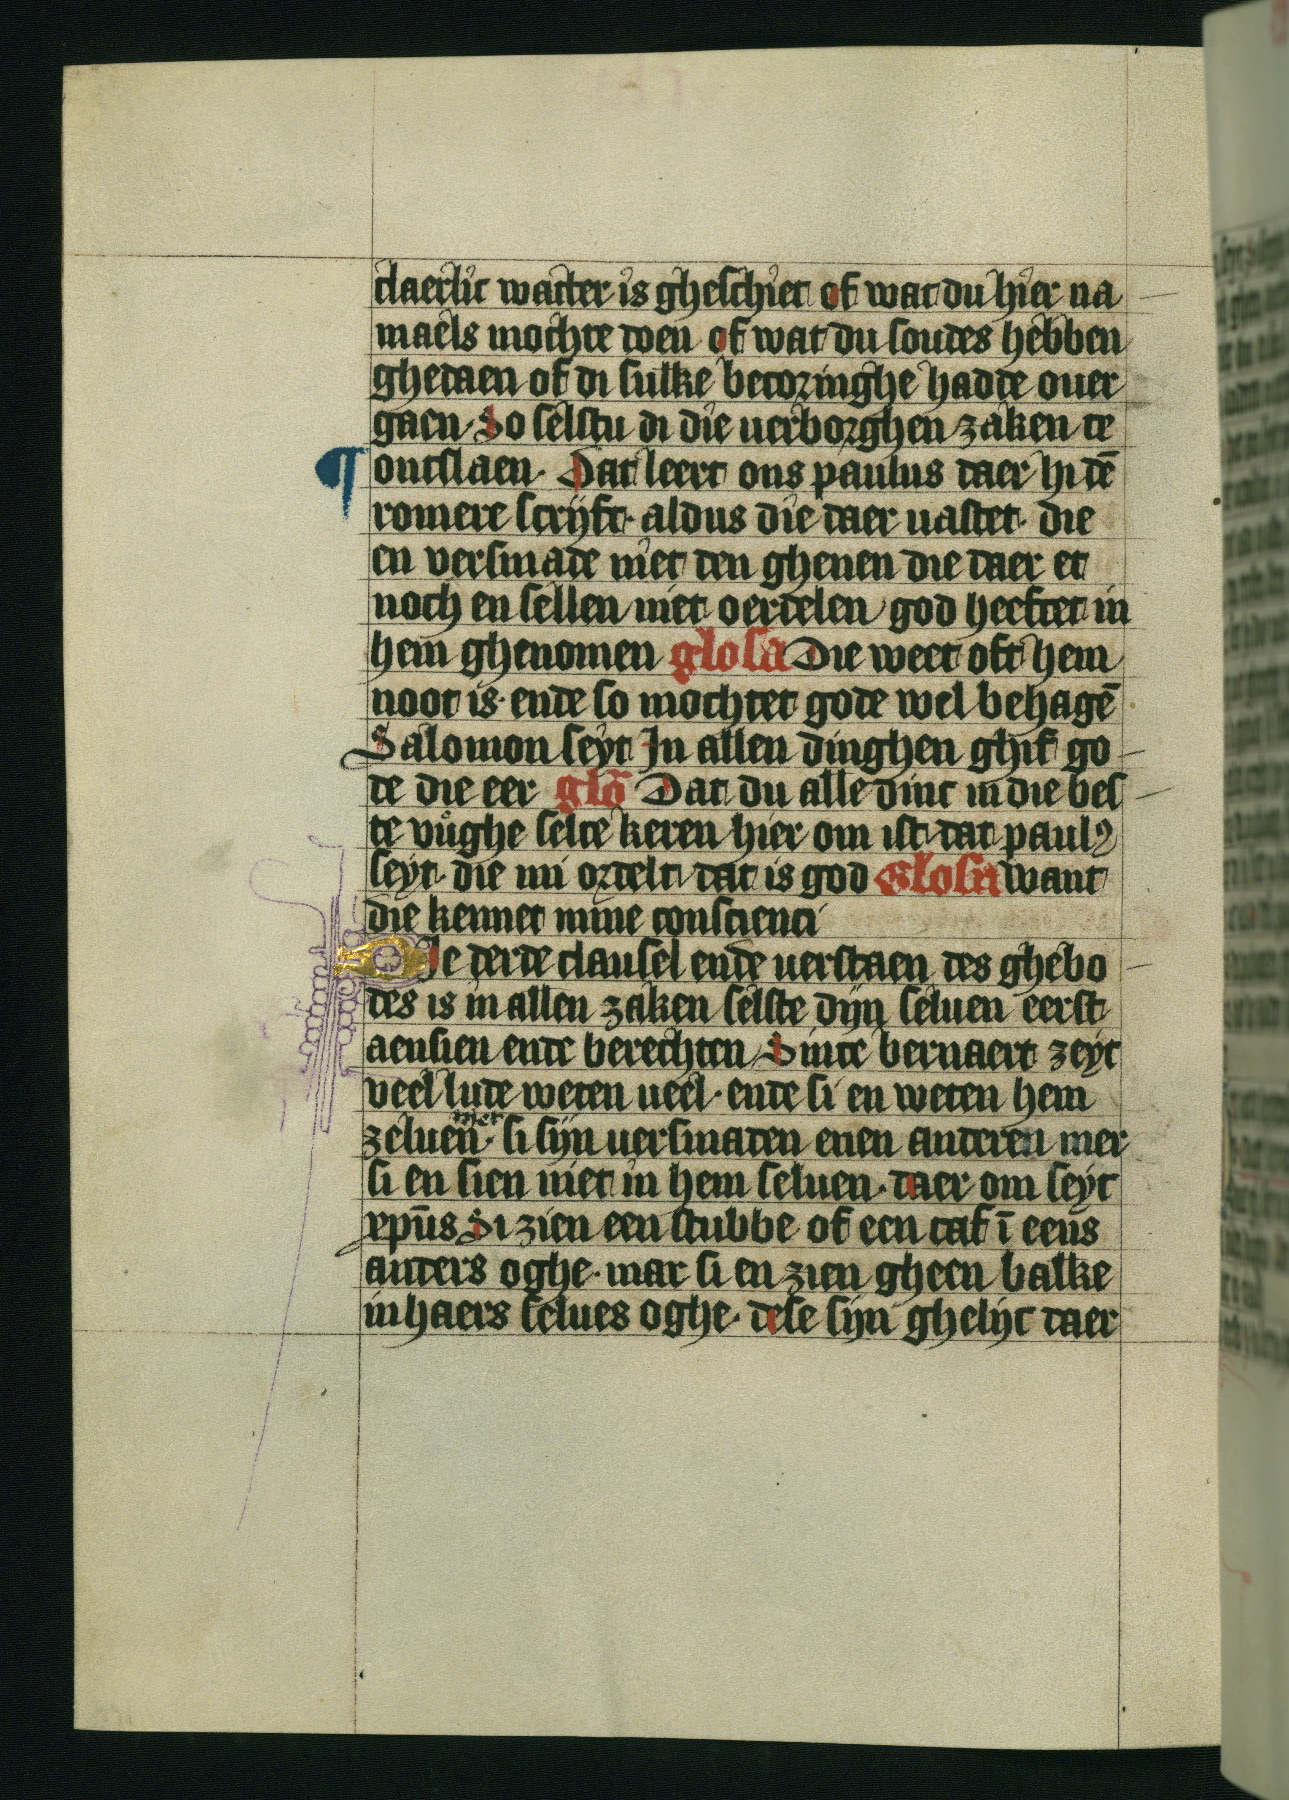 claerlic watter is gheschiet of wat du hier na
maels mochte doen of wat du soudes hebben
ghedaen of di sulke becoringhe hadde ouer
gaen· So selstu di die uerborghen zaken te
¶ ontslaen· Dat leert ons paulus daer hi dē
romere scrijft· aldus die daer uastet· die
en versmade niet den ghenen die daer et
noch en sellen niet oerdelen god heeftet in
hem ghenomen glosa Die weet oft hem
noot is· ende so mochtet gode wel behagē
Salomon seyt In allen dinghen ghif go
de die eer glo Dat du alle dinc in die bes
te vůghe selte keren hier om ist dat paulꝰ
seyt· die mi ordelt dat is god Glosa want
die kennet mine conscienci
Die derde clausel ende uerstaen des ghebo
des is in allen zaken selste dijn seluen eerst
aensien ende berechten Sinte bernaert zeyt
veel lude weten ueel· ende si en weten hem
zeluen niet· si sijn uersmaden enen anderen mer
si en sien niet in hem seluen· daer om seyt
xpūs Si zien een stubbe of een caf ī eens
anders oghe· mar si en zien gheen balke
in haers selues oghe· dese sijn ghelijc daer